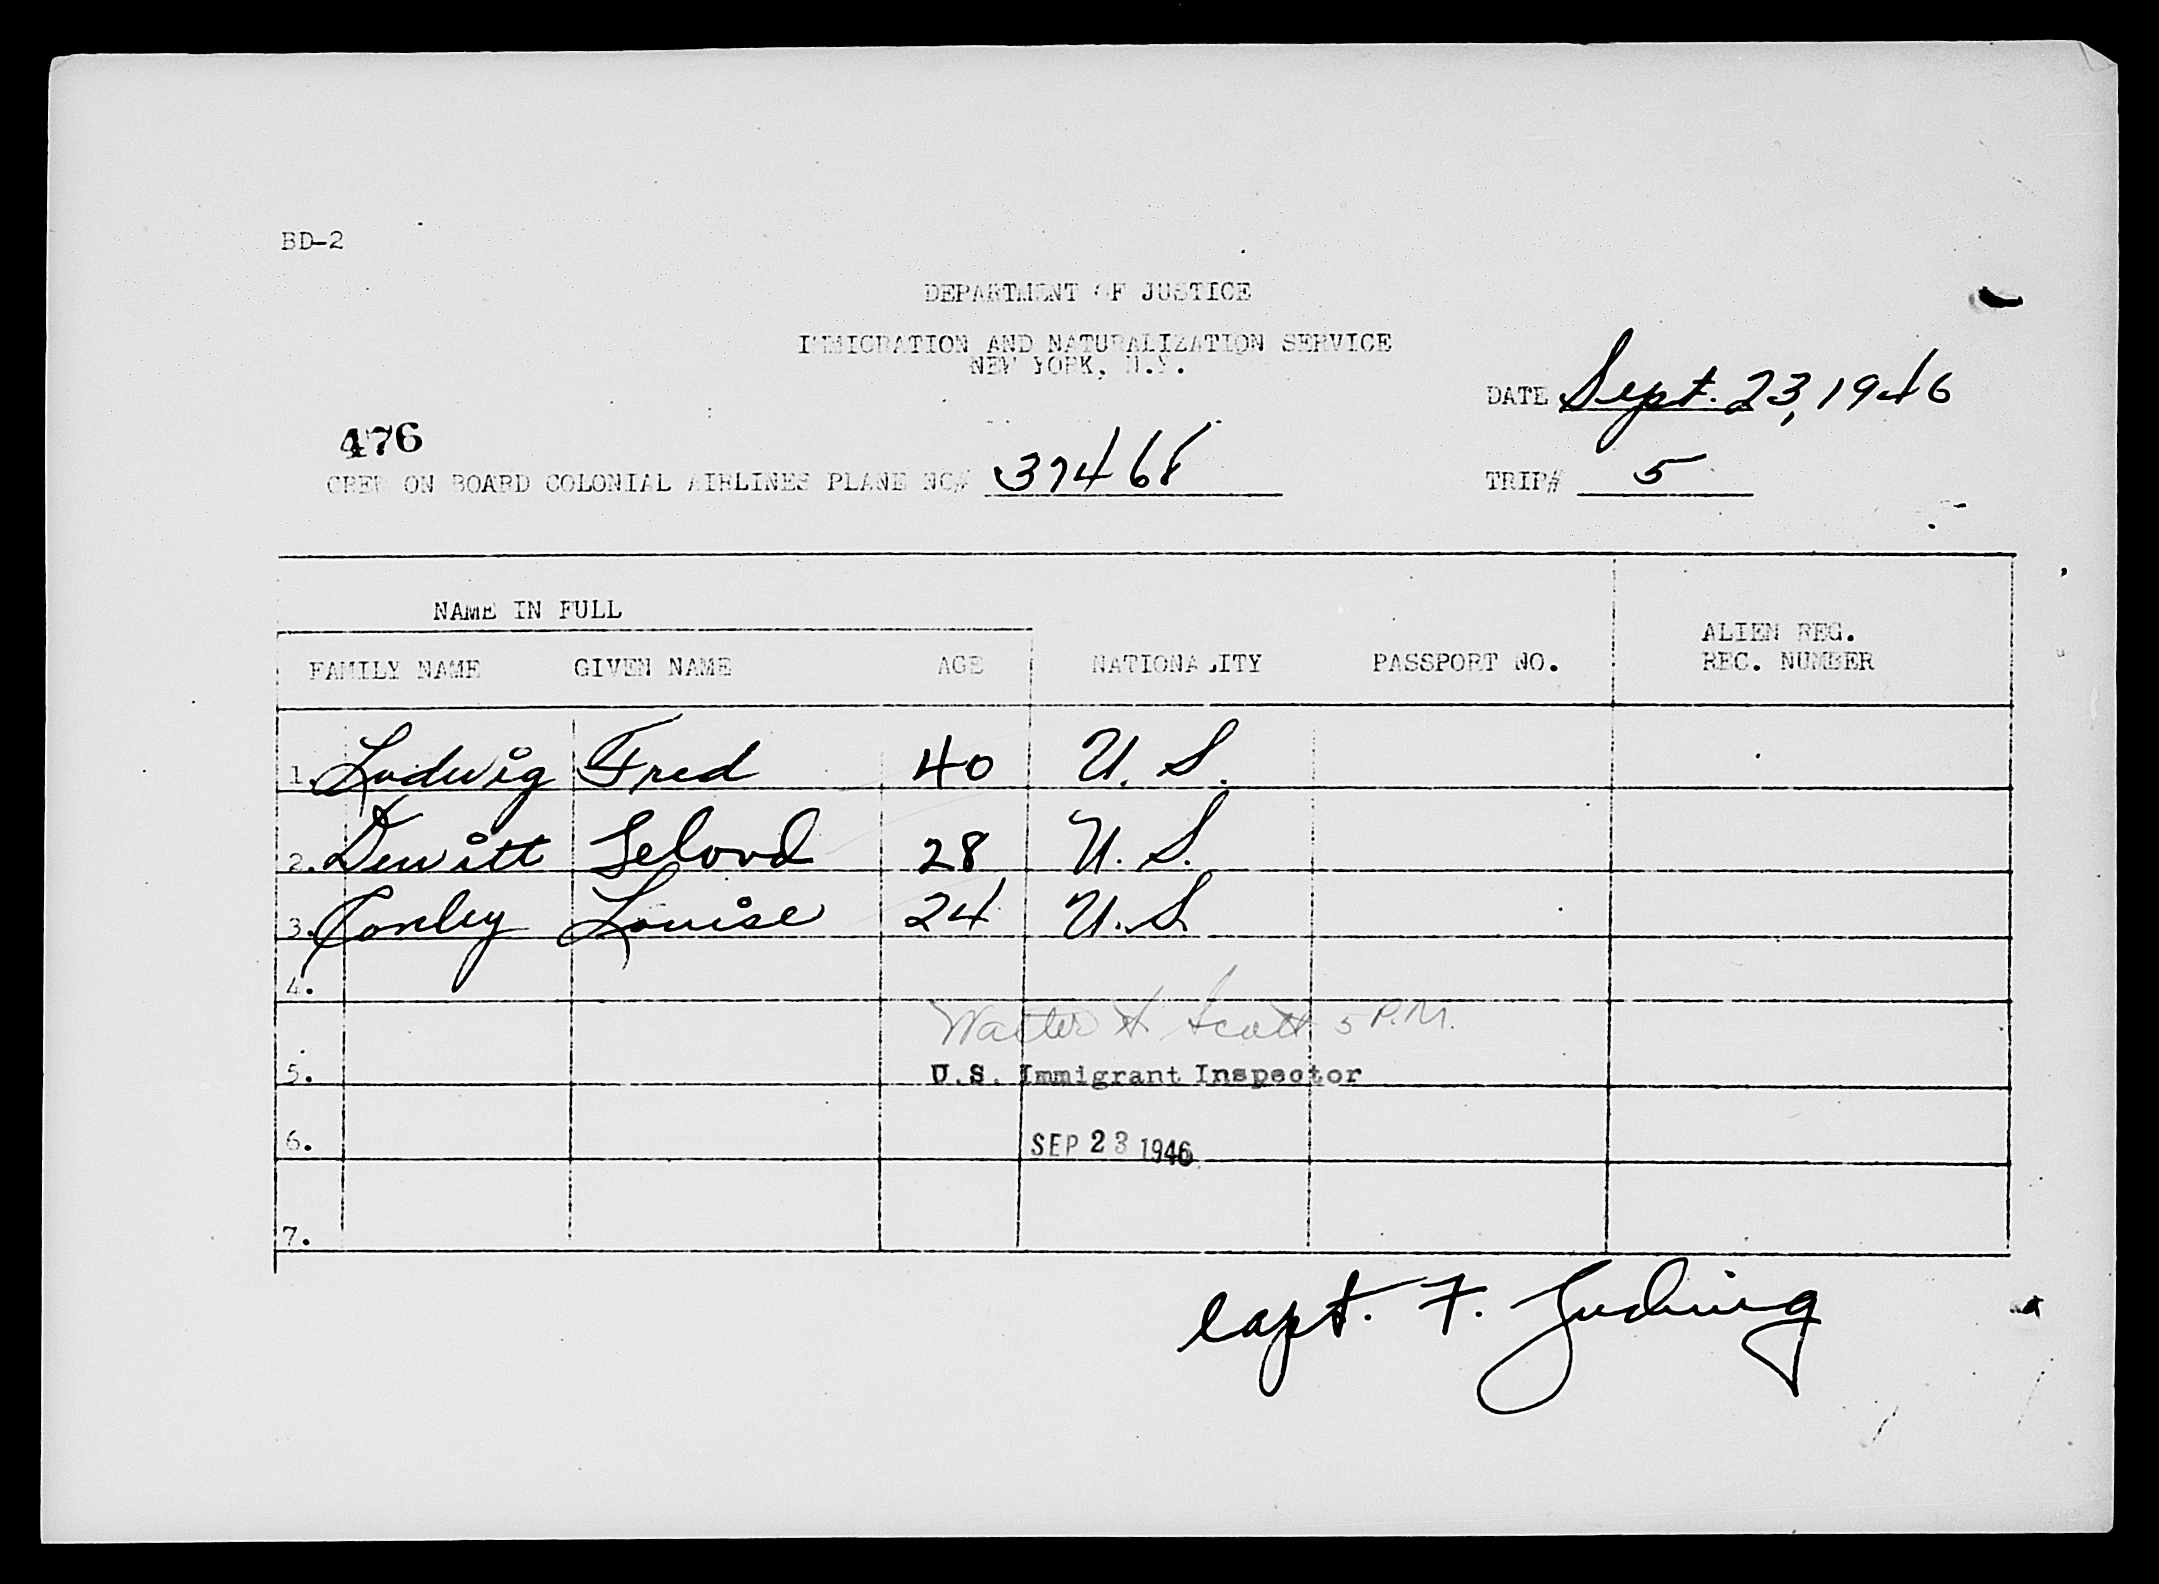 BD-2
DEPARTMENT OF JUSTICE
IMMIGRATION AND NATURALIZATION SERVICE
NEW YORK, N.Y.
DATE Sept. 23, 1946
476
CREW ON BOARD COLONIAL AIRLINES PLANE NO# 37468
TRIP# 5
NAME IN FULL
FAMILY NAME GIVEN NAME AGE NATIONALITY PASSPORT NO. ALIEN REG. REC. NUMBER
1. Ludwig Fred 40 U. S.
2. Dewitt 28 U. S.
3. Conley Louise 24 U. S.
4.
Walter Scott 5 P.M.
5. U.S. Immigrant Inspector
6. SEP 23 1946
7.
Capt. F. Ludwig